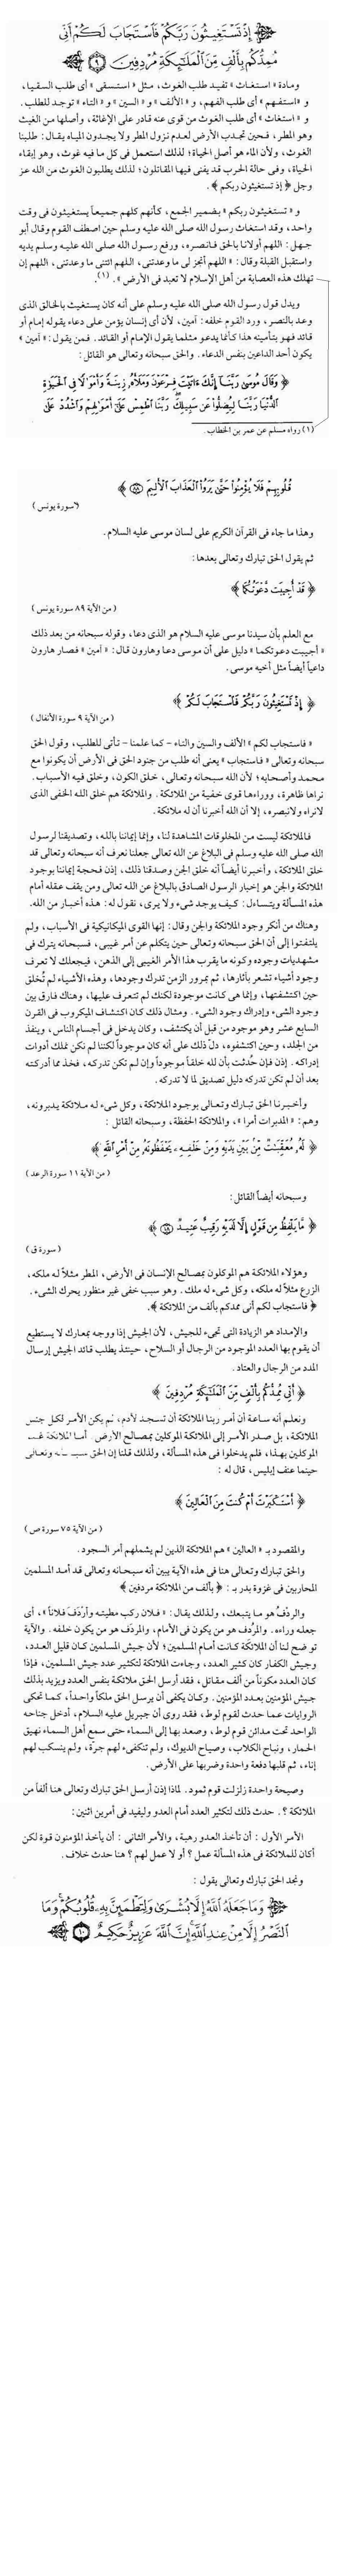 ﴿ إِذْ تَسْتَغِيثُونَ رَبَّكُمْ فَاسْتَجَابَ لَكُمْ أَنِّي
مُمِدُّكُم بِأَلْفٍ مِّنَ الْمَلَائِكَةِ مُرْدِفِينَ ۝٩ ﴾
ومادة « استغاث » تفيد طلب الغوث، مثل « استسقى » أى طلب السقيا،
و « استفهم » أى طلب الفهم، و « الألف » و « السين » و « التاء » توجد للطلب.
و « استغاث » أى طلب الغوث من قوى عنه قادر على الإغاثة، وأصلها من الغيث
وهو المطر، فحين تجدب الأرض لعدم نزول المطر ولا يجدون المياه يقال: طلبنا
الغوث، ولأن الماء هو أصل الحياة؛ لذلك استعمل فى كل ما فيه غوث، وهو إبقاء
الحياة، وفى حالة الحرب قد يفنى فيها المقاتلون؛ لذلك يطلبون الغوث من الله عز
وجل ﴿ إذ تستغيثون ربكم ﴾.
و « تستغيثون ربكم » بضمير الجمع، كأنهم كلهم جميعاً يستغيثون فى وقت
واحد، وقد استغاث رسول الله صلى الله عليه وسلم حين اصطف القوم وقال أبو
جهل: اللهم أولانا بالحق فانصره، ورفع رسول الله صلى الله عليه وسلم يديه
واستقبل القبلة وقال: « اللهم أنجز لى ما وعدتنى، اللهم ائتنى ما وعدتنى، اللهم إن
تهلك هذه العصابة من أهل الإسلام لا تعبد فى الأرض ». (١).
ويدل قول رسول الله صلى الله عليه وسلم على أنه كان يستغيث بالخالق الذى
وعد بالنصر، ورد القوم خلفه: آمين، لأن أى إنسان يؤمن على دعاء يقوله إمام أو
قائد فهو بتأمينه هذا كأنما يدعو مثلما يقول الإمام أو القائد. فمن يقول: « آمين »
يكون أحد الداعين بنفس الدعاء. والحق سبحانه وتعالى هو القائل:
﴿ وَقَالَ مُوسَىٰ رَبَّنَا إِنَّكَ ءَاتَيْتَ فِرْعَوْنَ وَمَلَأَهُ زِينَةً وَأَمْوَالًا فِى الْحَيَوٰةِ
الدُّنْيَا رَبَّنَا لِيُضِلُّوا عَن سَبِيلِكَ رَبَّنَا اطْمِسْ عَلَىٰ أَمْوَالِهِمْ وَاشْدُدْ عَلَىٰ
(١) رواه مسلم عن عمر بن الخطاب.
قُلُوبِهِمْ فَلَا يُؤْمِنُوا حَتَّىٰ يَرَوُا الْعَذَابَ الْأَلِيمَ ۝٨٨ ﴾
(سورة يونس)
وهذا ما جاء فى القرآن الكريم على لسان موسى عليه السلام.
ثم يقول الحق تبارك وتعالى بعدها:
﴿ قَدْ أُجِيبَت دَّعْوَتُكُمَا ﴾
(من الآية ٨٩ سورة يونس)
مع العلم بأن سيدنا موسى عليه السلام هو الذى دعا، وقوله سبحانه من بعد ذلك
« أجيبت دعوتكما » دليل على أن موسى دعا وهارون قال: « آمين » فصار هارون
داعياً أيضاً مثل أخيه موسى.
﴿ إِذْ تَسْتَغِيثُونَ رَبَّكُمْ فَاسْتَجَابَ لَكُمْ ﴾
(من الآية ٩ سورة الأنفال)
« فاستجاب لكم » الألف والسين والتاء – كما علمنا – تأتى للطلب، وقول الحق
سبحانه وتعالى « فاستجاب » يعنى أنه طلب من جنود الحق فى الأرض أن يكونوا مع
محمد وأصحابه؛ لأن الله سبحانه وتعالى، خلق الكون، وخلق فيه الأسباب.
نراها ظاهرة، ووراءها قوى خفية من الملائكة. والملائكة هم خلق الله الخفى الذى
لانراه ولانبصره، إلا أن الله أخبرنا أن له ملائكة.
فالملائكة ليست من المخلوقات المشاهدة لنا، وإنما إيماننا بالله، وتصديقنا لرسول
الله صلى الله عليه وسلم فى البلاغ عن الله تعالى جعلنا نعرف أنه سبحانه وتعالى قد
خلق الملائكة، وأخبرنا أيضاً أنه خلق الجن وصدقنا ذلك، إذن فحجة إيماننا بوجود
الملائكة والجن هو إخبار الرسول الصادق بالبلاغ عن الله تعالى ومن يقف عقله أمام
هذه المسألة ويتساءل: كيف يوجد شىء ولا يرى، نقول له: هذه أخبار من الله.
وهناك من أنكر وجود الملائكة والجن وقال: إنها القوى الميكانيكية فى الأسباب، ولم
يلتفتوا إلى أن الحق سبحانه وتعالى حين يتكلم عن أمر غيبى، فسبحانه يترك فى
مشهديات وجوده وكونه ما يقرب هذا الأمر الغيبى إلى الذهن، فيجعلك لا تعرف
وجود أشياء تشعر بآثارها، ثم بمرور الزمن تدرك وجودها، وهذه الأشياء لم تُخلق
حين اكتشفتها، وإنما هى كانت موجودة لكنك لم تتعرف عليها، وهناك فارق بين
وجود الشىء وإدراك وجود الشىء. ومثال ذلك كان اكتشاف الميكروب فى القرن
السابع عشر وهو موجود من قبل أن يكتشف، وكان يدخل فى أجسام الناس، وينفذ
من الجلد، وحين اكتشفوه، دل ذلك على أنه كان موجوداً لكننا لم نكن نملك أدوات
إدراكه. إذن فإن حُدثت بأن لله خلقاً موجوداً وإن لم تكن تدركه، فخذ مما أدركته
بعد أن لم تكن تدركه دليل تصديق لما لا تدركه.
وأخبرنا الحق تبارك وتعالى بوجود الملائكة، وكل شىء له ملائكة يدبرونه،
وهم: « المدبرات أمرا »، والملائكة الحفظة، وسبحانه القائل:
﴿ لَهُ مُعَقِّبَاتٌ مِّن بَيْنِ يَدَيْهِ وَمِنْ خَلْفِهِ يَحْفَظُونَهُ مِنْ أَمْرِ اللَّهِ ﴾
(من الآية ١١ سورة الرعد)
وسبحانه أيضاً القائل:
﴿ مَّا يَلْفِظُ مِن قَوْلٍ إِلَّا لَدَيْهِ رَقِيبٌ عَتِيدٌ ۝١٨ ﴾
(سورة ق)
وهؤلاء الملائكة هم الموكلون بمصالح الإنسان فى الأرض، المطر مثلاً له ملكه،
الزرع مثلاً له ملكه، وكل شىء له ملك. وهو سبب خفى غير منظور يحرك الشىء.
﴿ فاستجاب لكم أنى ممدكم بألف من الملائكة ﴾.
والإمداد هو الزيادة التى تجىء للجيش، لأن الجيش إذا ووجه بمعارك لا يستطيع
أن يقوم بها العدد الموجود من الرجال أو السلاح، حينئذ يطلب قائد الجيش إرسال
المدد من الرجال والعتاد.
﴿ أَنِّي مُمِدُّكُم بِأَلْفٍ مِّنَ الْمَلَائِكَةِ مُرْدِفِينَ ﴾
ونعلم أنه ساعة أن أمر ربنا الملائكة أن تسجد لآدم، لم يكن الأمر لكل جنس
الملائكة، بل صدر الأمر إلى الملائكة الموكلين بمصالح الأرض. أما الملائكة غير
الموكلين بهذا، فلم يدخلوا فى هذه المسألة، ولذلك قلنا إن الحق سبحانه وتعالى
حينما عنف إبليس، قال له:
﴿ أَسْتَكْبَرْتَ أَمْ كُنتَ مِنَ الْعَالِينَ ﴾
(من الآية ٧٥ سورة ص)
والمقصود بـ « العالين » هم الملائكة الذين لم يشملهم أمر السجود.
والحق تبارك وتعالى هنا فى هذه الآية يبين أنه سبحانه وتعالى قد أمد المسلمين
المحاربين فى غزوة بدر بـ: ﴿ بألف من الملائكة مردفين ﴾
والردْفُ هو ما يتبعك، ولذلك يقال: « فلان ركب مطيته وأردَفَ فلاناً »، أى
جعله وراءه. والمرْدِف هو من يكون فى الأمام، والمردَف هو من يكون خلفه. والآية
توضح لنا أن الملائكة كانت أمام المسلمين؛ لأن جيش المسلمين كان قليل العدد،
وجيش الكفار كان كثير العدد، وجاءت الملائكة لتكثير عدد جيش المسلمين، فإذا
كان العدد مكوناً من ألف مقاتل، فقد أرسل الحق ملائكة بنفس العدد ويزيد بذلك
جيش المؤمنين بعدد المؤمنين. وكان يكفى أن يرسل الحق ملكاً واحداً، كما تحكى
الروايات عما حدث لقوم لوط، فقد روى أن جبريل عليه السلام، أدخل جناحه
الواحد تحت مدائن قوم لوط، وصعد بها إلى السماء حتى سمع أهل السماء نهيق
الحمار، ونباح الكلاب، وصياح الديوك، ولم تنكفىء لهم جرة، ولم ينسكب لهم
إناء، ثم قلبها دفعة واحدة وضربها على الأرض.
وصيحة واحدة زلزلت قوم ثمود. لماذا إذن أرسل الحق تبارك وتعالى هنا ألفاً من
الملائكة؟. حدث ذلك لتكثير العدد أمام العدو وليفيد فى أمرين اثنين:
الأمر الأول: أن تأخذ العدو رهبة، والأمر الثانى: أن يأخذ المؤمنون قوة لكن
أكان للملائكة فى هذه المسألة عمل؟ أو لا عمل لهم؟ هنا حدث خلاف.
ونجد الحق تبارك وتعالى يقول:
﴿ وَمَا جَعَلَهُ اللَّهُ إِلَّا بُشْرَىٰ وَلِتَطْمَئِنَّ بِهِ قُلُوبُكُمْ وَمَا
النَّصْرُ إِلَّا مِنْ عِندِ اللَّهِ إِنَّ اللَّهَ عَزِيزٌ حَكِيمٌ ۝١٠ ﴾